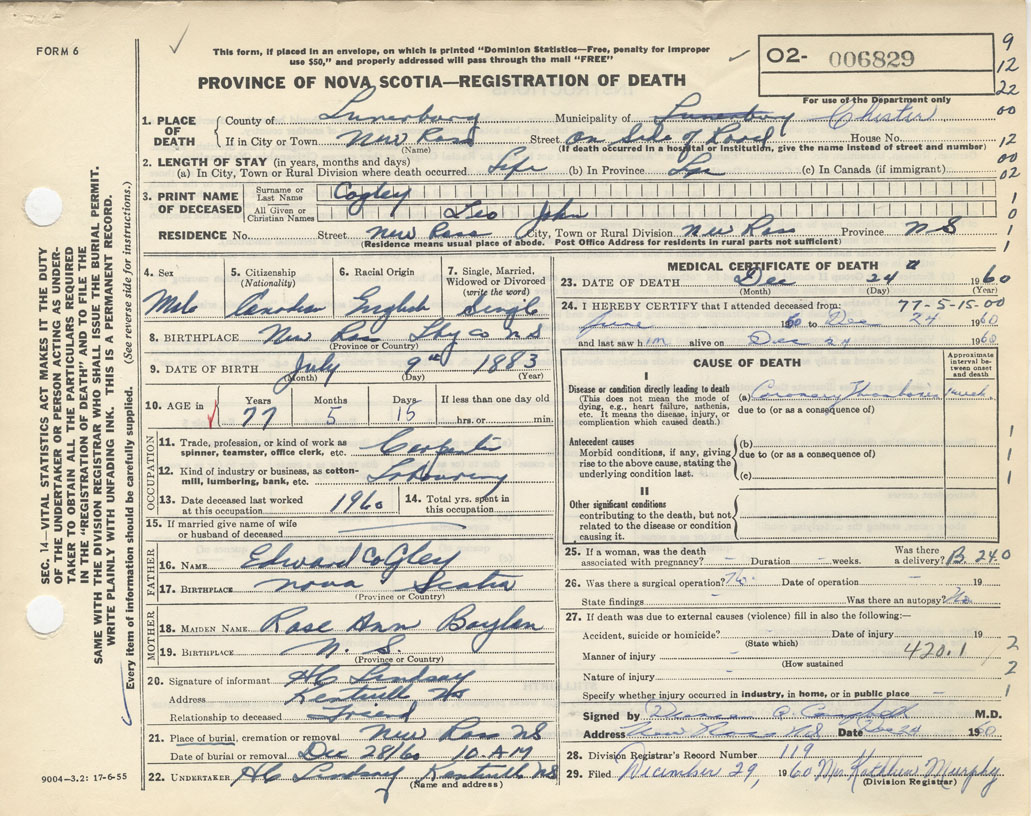 FORM 6
This form, if placed in an envelope, on which is printed "Dominion Statistics—Free, penalty for improper
use $50," and properly addressed will pass through the mail "FREE"
PROVINCE OF NOVA SCOTIA—REGISTRATION OF DEATH
O2- 006829
For use of the Department only
9
12
22
00
12
00
02
1
0
1
1
1. PLACE OF DEATH
County of Lunenburg Municipality of Lunenburg Chester
If in City or Town New Ross Street on Side of Road House No.
(Name) (If death occurred in a hospital or institution, give the name instead of street and number)
2. LENGTH OF STAY (in years, months and days)
(a) In City, Town or Rural Division where death occurred Life (b) In Province Life (c) In Canada (if immigrant)
3. PRINT NAME OF DECEASED
Surname or Last Name Cogley
All Given or Christian Names Leo John
RESIDENCE No. Street New Ross City, Town or Rural Division New Ross Province N S
(Residence means usual place of abode. Post Office Address for residents in rural parts not sufficient)
4. Sex Male
5. Citizenship (Nationality) Canadian
6. Racial Origin English
7. Single, Married, Widowed or Divorced (write the word) Single
8. BIRTHPLACE New Ross Lbg Co NS
(Province or Country)
9. DATE OF BIRTH July 9th 1883
(Month) (Day) (Year)
10. AGE in Years 77 Months 5 Days 15 If less than one day old hrs. or min.
OCCUPATION
11. Trade, profession, or kind of work as spinner, teamster, office clerk, etc. Carpenter
12. Kind of industry or business, as cotton-mill, lumbering, bank, etc. Labouring
13. Date deceased last worked at this occupation 1960
14. Total yrs. spent in this occupation
15. If married give name of wife or husband of deceased
FATHER
16. NAME Edward Cogley
17. BIRTHPLACE Nova Scotia
(Province or Country)
MOTHER
18. MAIDEN NAME Rose Ann Boylen
19. BIRTHPLACE N. S.
(Province or Country)
20. Signature of informant H C Lindsay
Address Kentville NS
Relationship to deceased Friend
21. Place of burial, cremation or removal New Ross NS
Date of burial or removal Dec 28/60 10 AM
22. UNDERTAKER H C Lindsay Kentville NS
(Name and address)
MEDICAL CERTIFICATE OF DEATH
23. DATE OF DEATH Dec 24 1960
(Month) (Day) (Year)
24. I HEREBY CERTIFY that I attended deceased from: 77-5-15-00
June 1960 to Dec 24 1960
and last saw him alive on Dec 24 1960
CAUSE OF DEATH
Approximate interval between onset and death
I
Disease or condition directly leading to death
(This does not mean the mode of dying, e.g., heart failure, asthenia, etc. It means the disease, injury, or complication which caused death.)
(a) Coronary Thrombosis
due to (or as a consequence of)
Antecedent causes
Morbid conditions, if any, giving rise to the above cause, stating the underlying condition last.
(b)
due to (or as a consequence of)
(c)
1
1
1
II
Other significant conditions
contributing to the death, but not related to the disease or condition causing it.
25. If a woman, was the death associated with pregnancy? Duration weeks. Was there a delivery? B. 240
26. Was there a surgical operation? No Date of operation 19
State findings Was there an autopsy? No
27. If death was due to external causes (violence) fill in also the following:—
Accident, suicide or homicide? Date of injury 19
(State which)
Manner of injury 420.1
(How sustained)
Nature of injury
Specify whether injury occurred in industry, in home, or in public place
2
2
1
Signed by Campbell M.D.
Address New Ross NS Date Dec 24 1960
28. Division Registrar's Record Number 119
29. Filed December 29, 1960 Mrs Kathleen Murphy
(Division Registrar)
SEC. 14—VITAL STATISTICS ACT MAKES IT THE DUTY
OF THE UNDERTAKER OR PERSON ACTING AS UNDER-
TAKER TO OBTAIN ALL THE PARTICULARS REQUIRED
IN THE "REGISTRATION OF DEATH" AND TO FILE THE
SAME WITH THE DIVISION REGISTRAR WHO SHALL ISSUE THE BURIAL PERMIT.
WRITE PLAINLY WITH UNFADING INK. THIS IS A PERMANENT RECORD.
Every item of information should be carefully supplied. (See reverse side for instructions.)
9004—3.2: 17-6-55